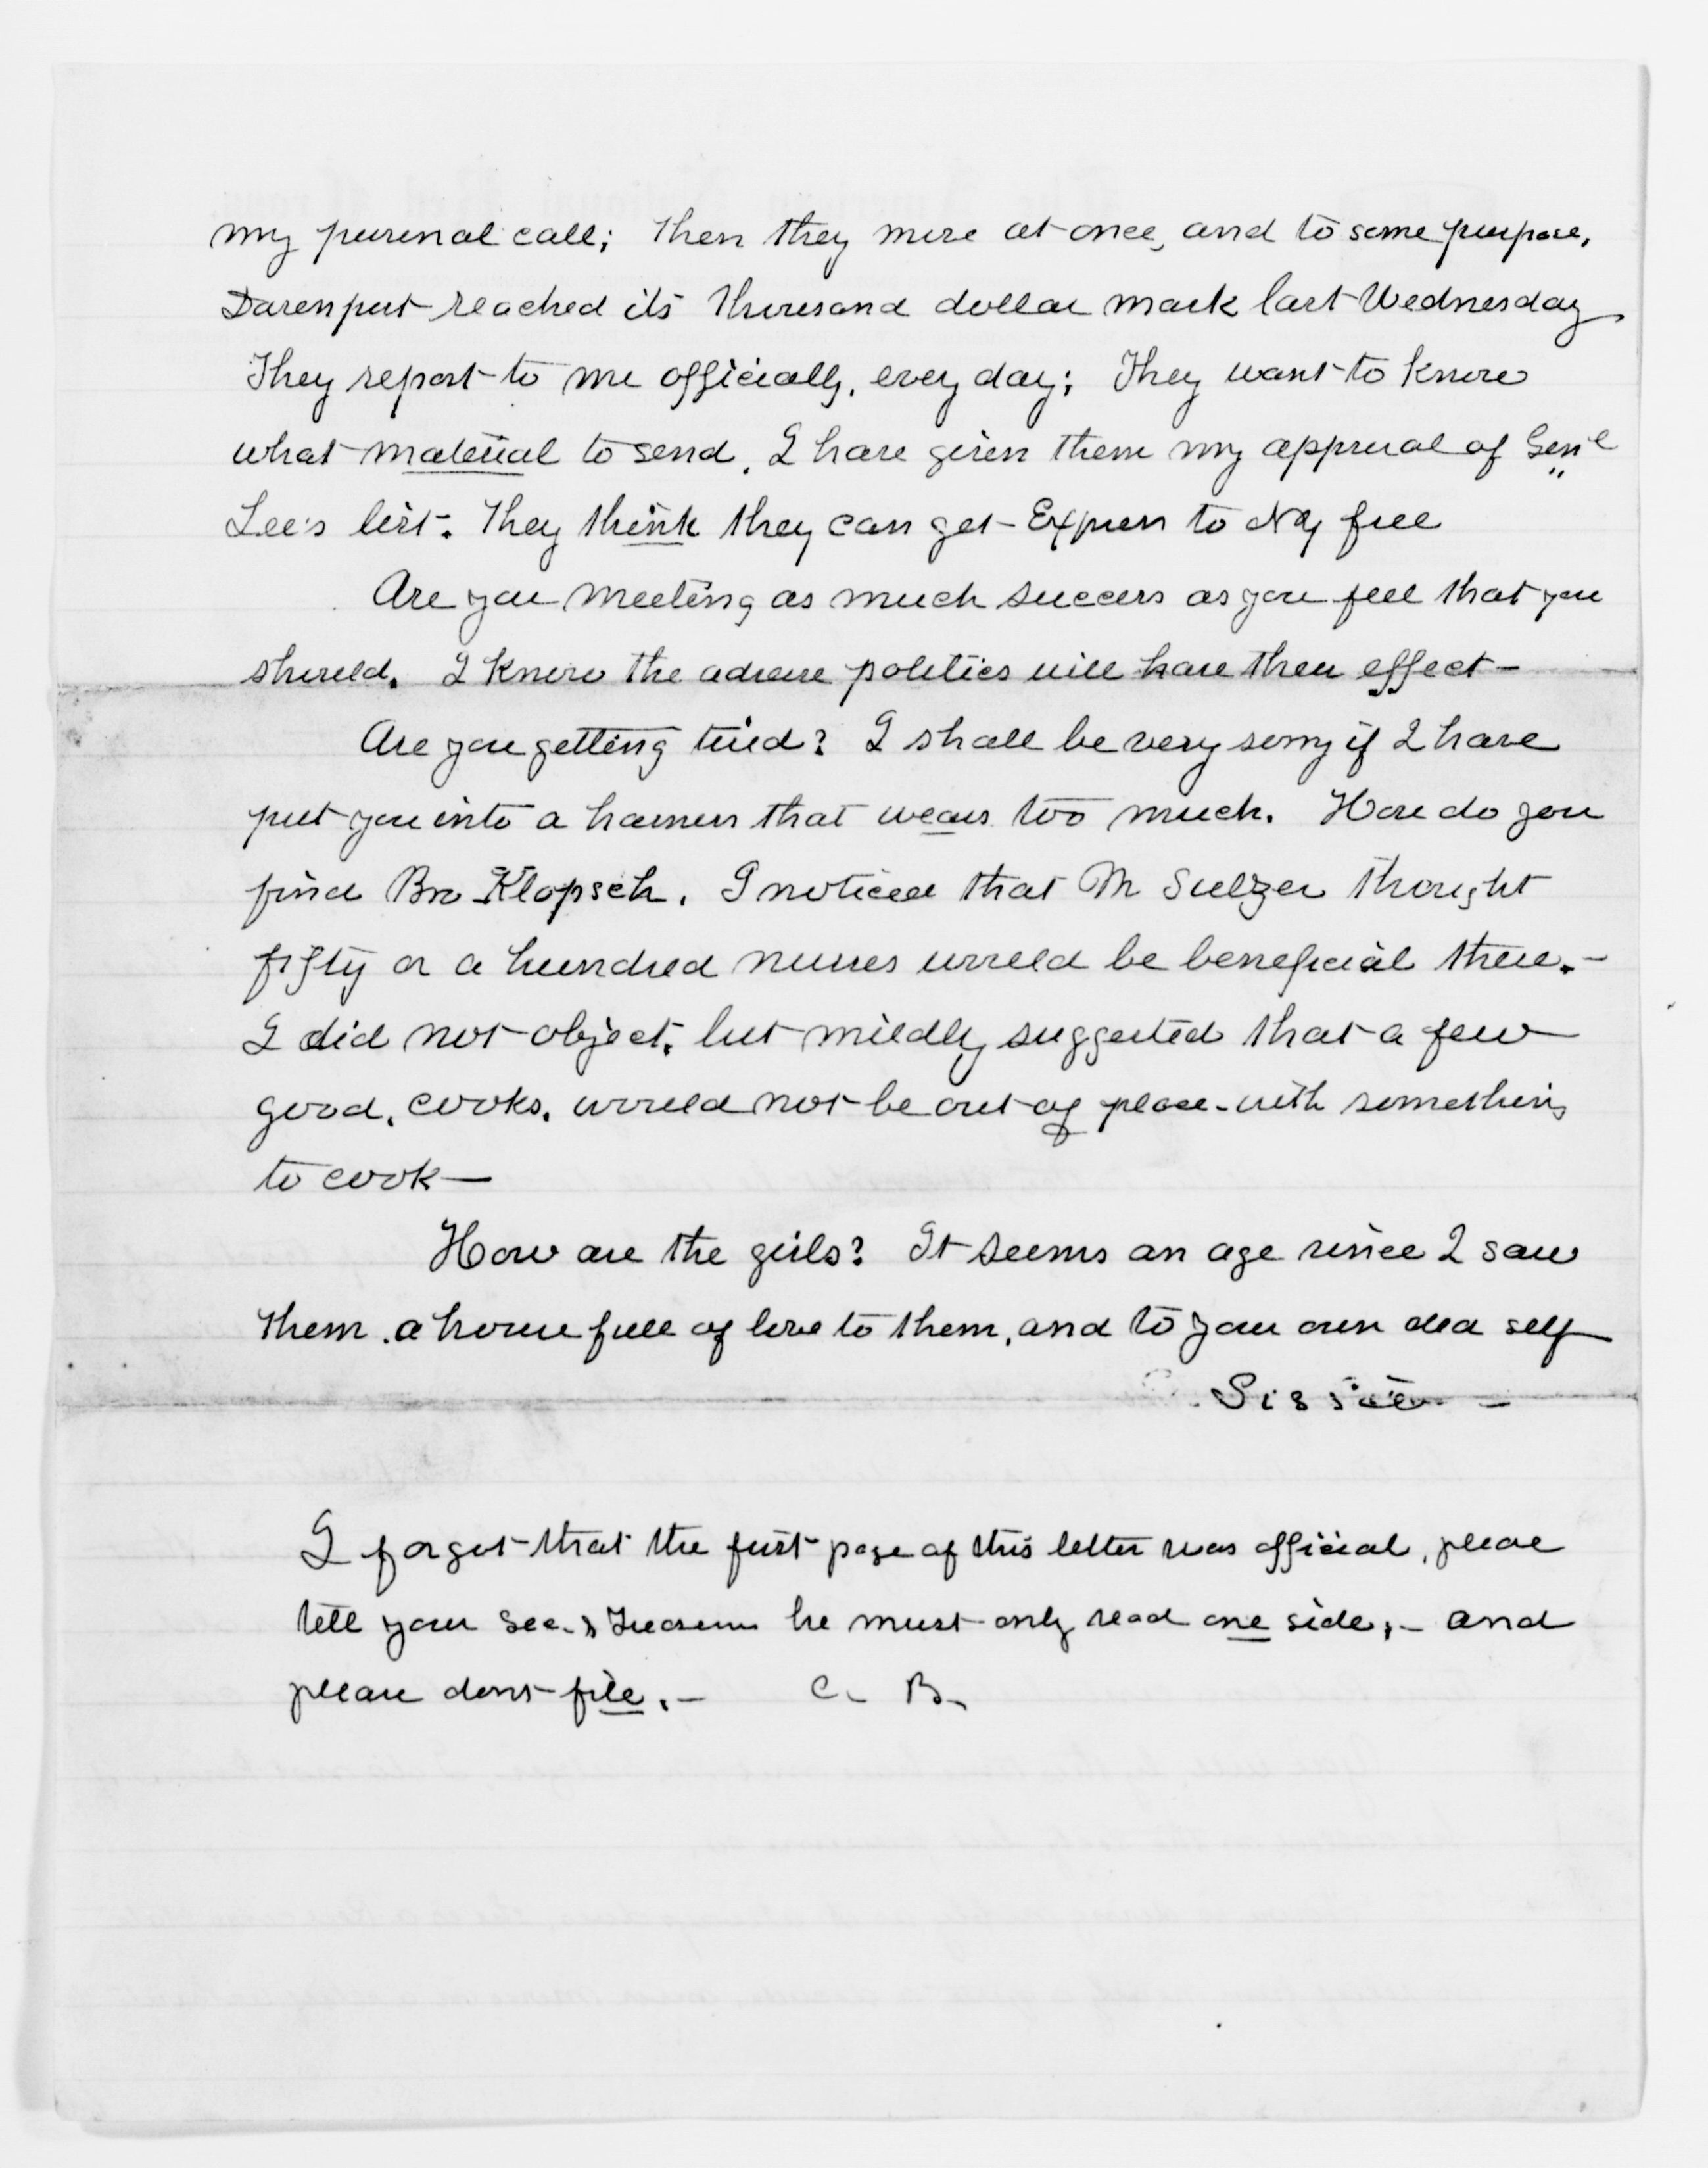 my personal call; then they move at once, and to some purpose.
Davenport reached its thousand dollar mark last Wednesday
They report to me officially, every day; They want to know
what material to send. I have given them my approval of Gen'l
Lee's list. They think they can get Express to NY free
Are you meeting as much success as you feel that you
should. I know the adverse politics will have their effect—
Are you getting tired? I shall be very sorry if I have
put you into a harness that wears too much. How do you
find Bro Klopsch. I noticed that Mr Sulzer thought
fifty or a hundred nurses would be beneficial there.-
I did not object, but mildly suggested that a few
good, cooks, would not be out of place - with something
to cook—
How are the girls? It seems an age since I saw
them. a house full of love to them, and to your own dear self
Sissie —
I forgot that the first page of this letter was official, please
tell your Sec. & Treasurer he must only read one side,- and
please dont file.- C. B.